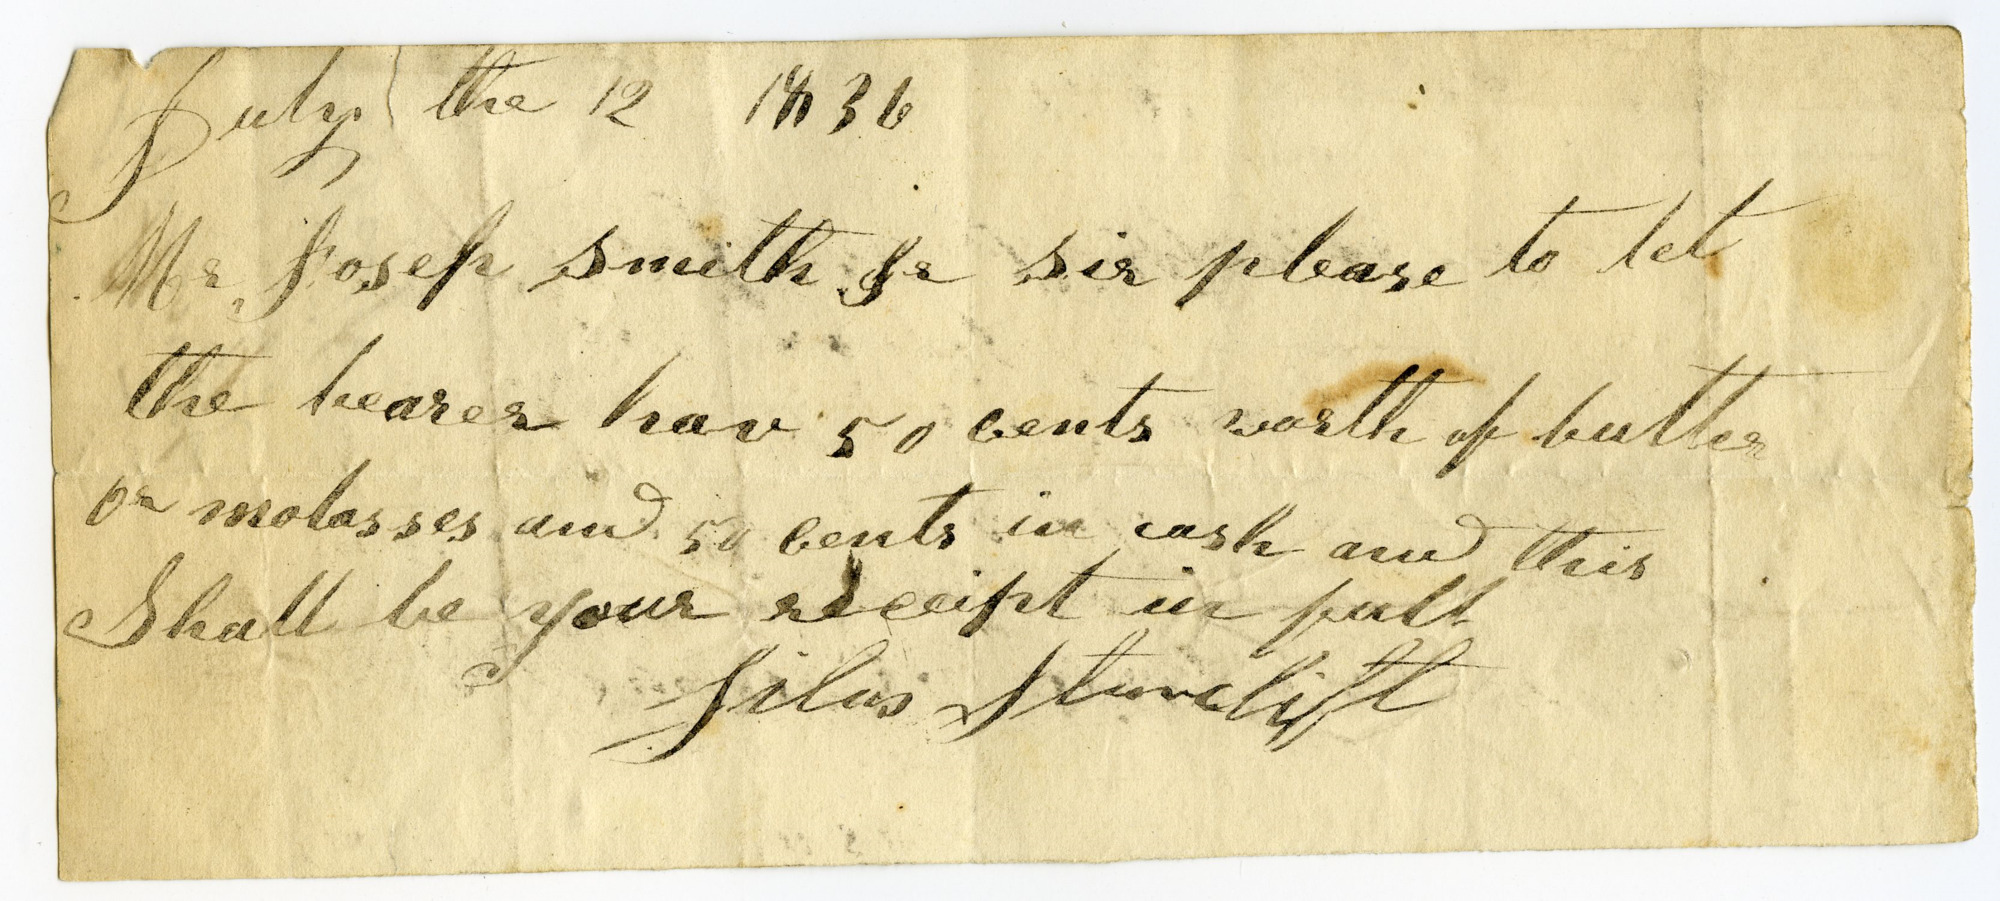 July the 12 1836
Mr Joseph Smith Jr sir please to let
the bearer hav 50 cents worth of butter
or molasses and 50 cents in cash and this
Shall be your receipt in full
Silas